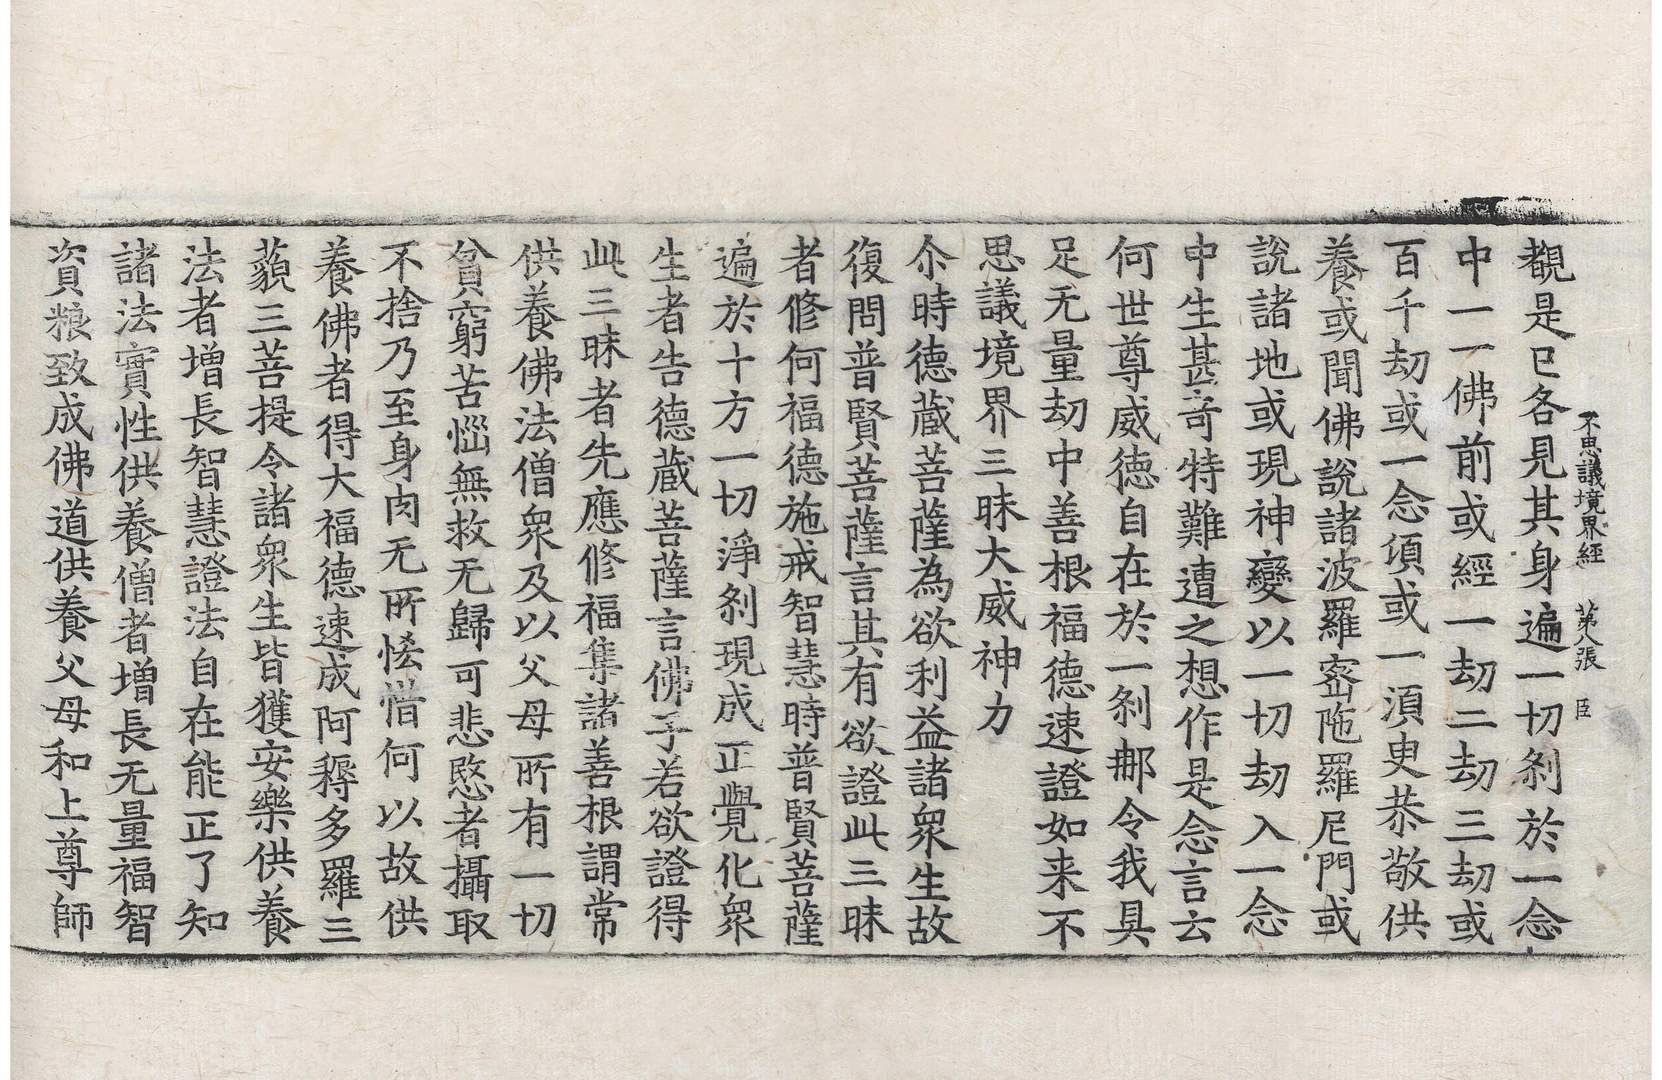 不思議境界經　第八張　臣
觀是已各見其身遍一切刹於一念
中一一佛前或經一劫二劫三劫或
百千劫或一念頃或一須臾恭敬供
養或聞佛說諸波羅蜜陁羅尼門或
說諸地或現神變以一切劫入一念
中生甚奇特難遭之想作是念言云
何世尊威德自在於一刹那令我具
足无量劫中善根福德速證如来不
思議境界三昧大威神力
尒時德藏菩薩為欲利益諸衆生故
復問普賢菩薩言其有欲證此三昧
者修何福德施戒智慧時普賢菩薩
遍於十方一切淨刹現成正覺化衆
生者告德藏菩薩言佛子若欲證得
此三昧者先應修福集諸善根謂常
供養佛法僧衆及以父母所有一切
貧窮苦惱無救无歸可悲愍者攝取
不捨乃至身肉无所悋惜何以故供
養佛者得大福德速成阿耨多羅三
藐三菩提令諸衆生皆獲安樂供養
法者增長智慧證法自在能正了知
諸法實性供養僧者增長无量福智
資粮致成佛道供養父母和上尊師